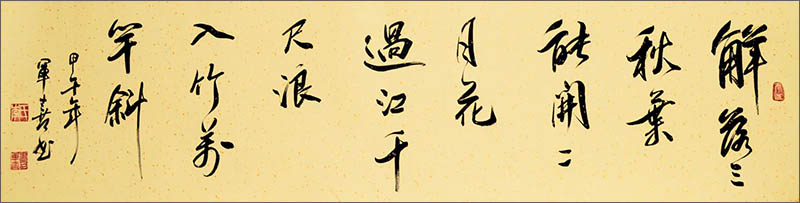 解落三
秋葉
能開二
月花
過江千
尺浪
入竹萬
竿斜
甲午年
軍喜书